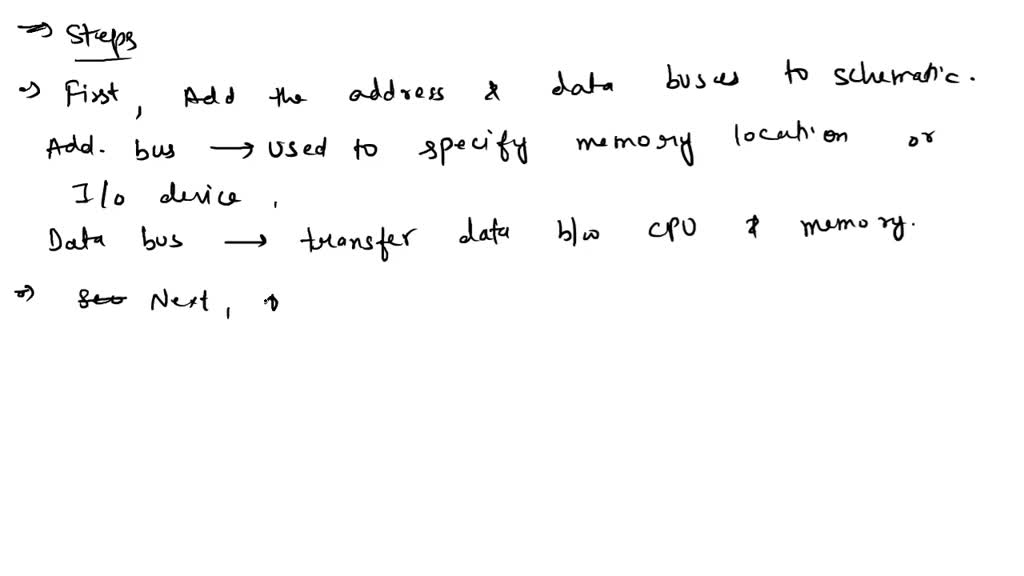 → Steps
→ First, Add the address & data buses to schematic.
Add. bus → used to specify memory location or
I/o device,
Data bus → transfer data b/w CPU & memory.
→ Next,